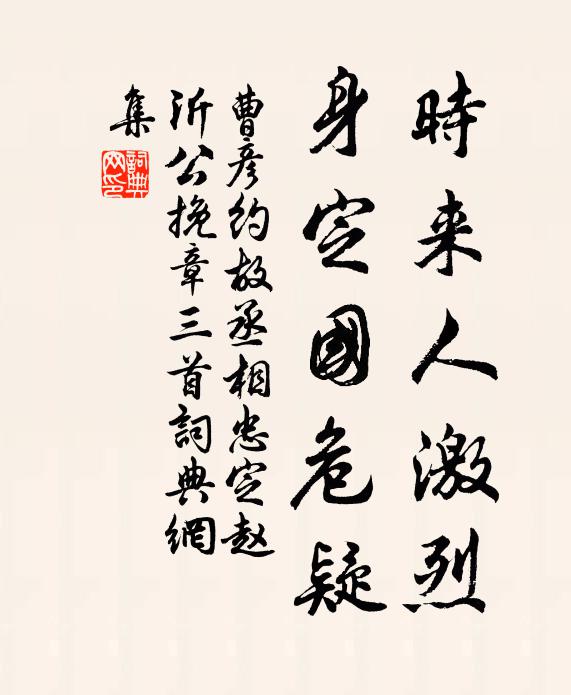 時来人激烈
身定國危疑
曹彦約故丞相忠定赵
沂公挽章三首詞典網
集
詞典
网印